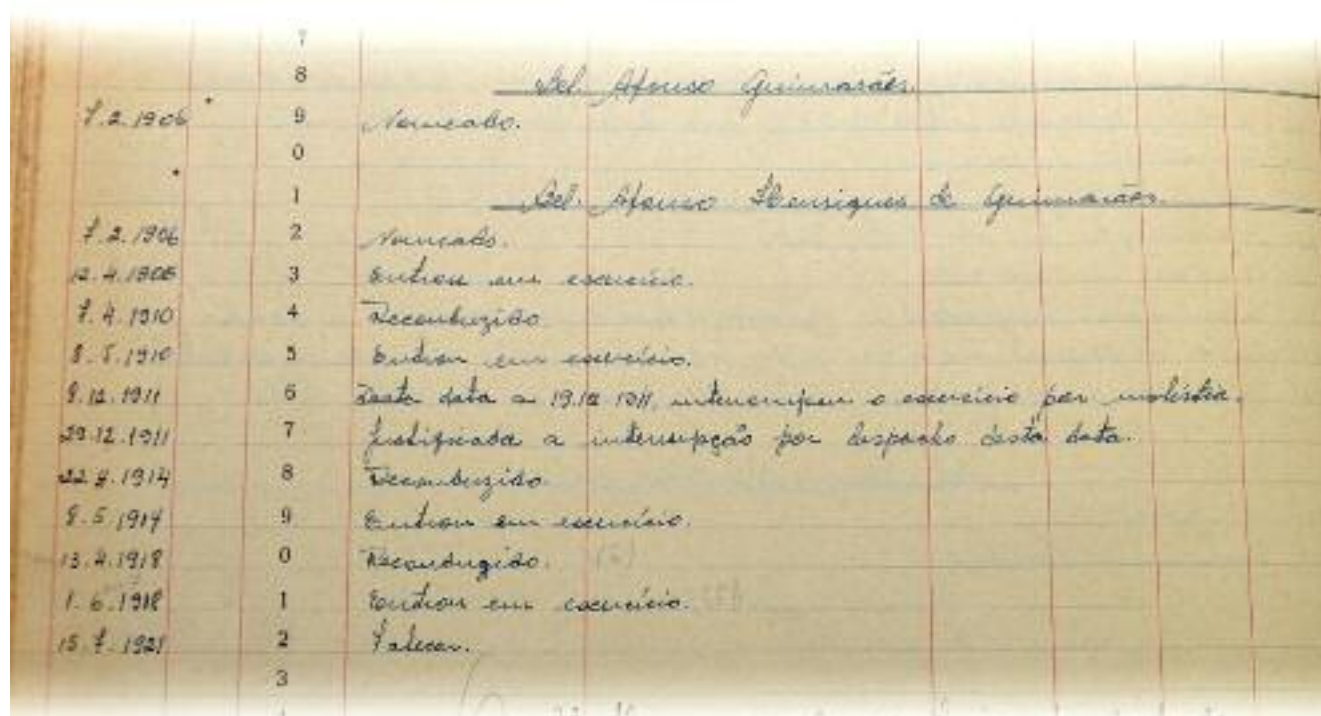 7
8 Bel. Afonso Guimarães.
7.2.1906 9 Nomeado.
0
1 Bel. Afonso Henriques de Guimarães.
7.2.1906 2 Nomeado.
12.4.1906 3 Entrou em exercício.
7.4.1910 4 Reconduzido
8.5.1910 5 Entrou em exercício.
9.12.1911 6 Desta data a 19.12.1911, interrompeu o exercício por moléstia.
29.12.1911 7 Justificada a interrupção por despacho desta data.
22.4.1914 8 Reconduzido
8.5.1914 9 Entrou em exercício.
13.4.1918 0 Reconduzido.
1.6.1918 1 Entrou em exercício.
15.7.1921 2 Faleceu.
3